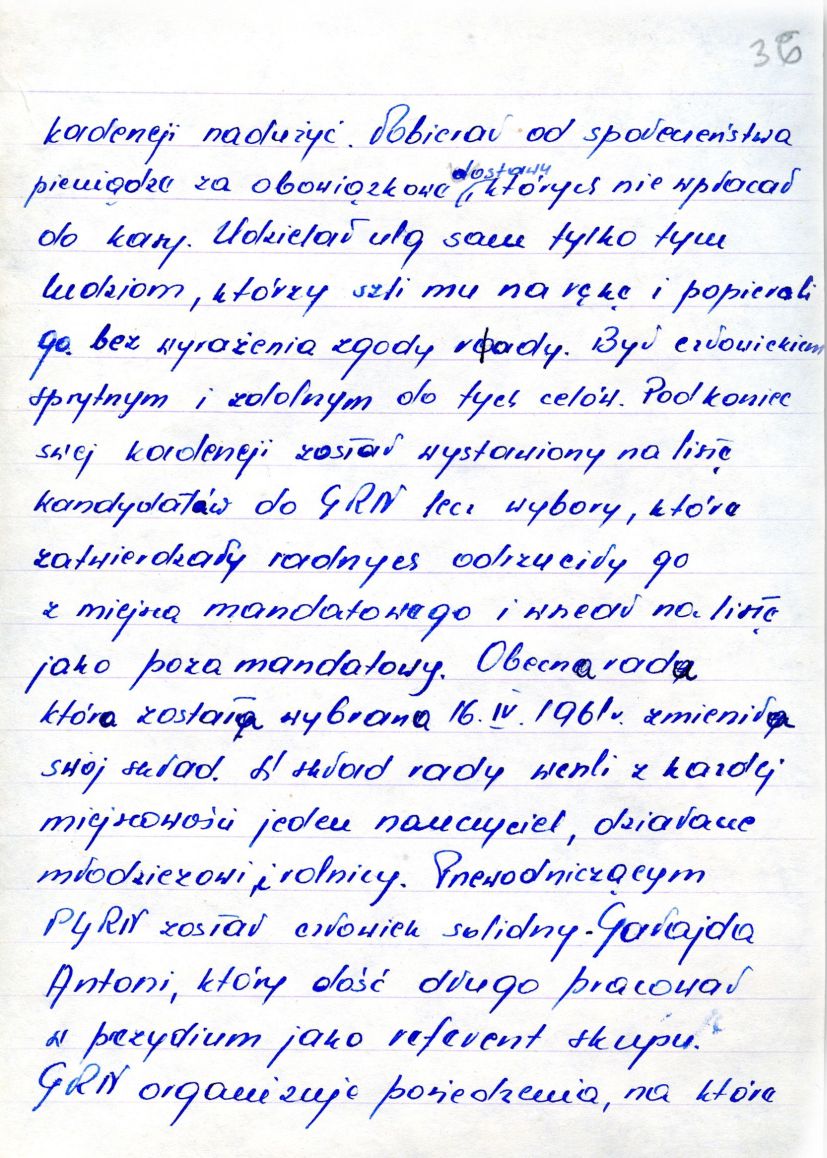 36
kadencji nadużyć. Pobierał od społeczeństwa
pieniądze za obowiązkowe dostawy, których nie wpłacał
do kasy. Udzielał ulg sam tylko tym
ludziom, którzy szli mu na rękę i popierali
go bez wyrażenia zgody rady. Był człowiekiem
sprytnym i zdolnym do tych celów. Pod koniec
swej kadencji został wystawiony na listę
kandydatów do GRN lecz wybory, które
zatwierdzały radnych odrzuciły go
z miejsca mandatowego i wszedł na listę
jako poza mandatowy. Obecna rada
która została wybrana 16.IV.1961r. zmieniła
swój skład. W skład rady weszli z każdej
miejscowości jeden nauczyciel, działacze
młodzieżowi i rolnicy. Przewodniczącym
PGRN został człowiek solidny - Gałajda
Antoni, który dość długo pracował
w prezydium jako referent skupu.
GRN organizuje posiedzenia, na które